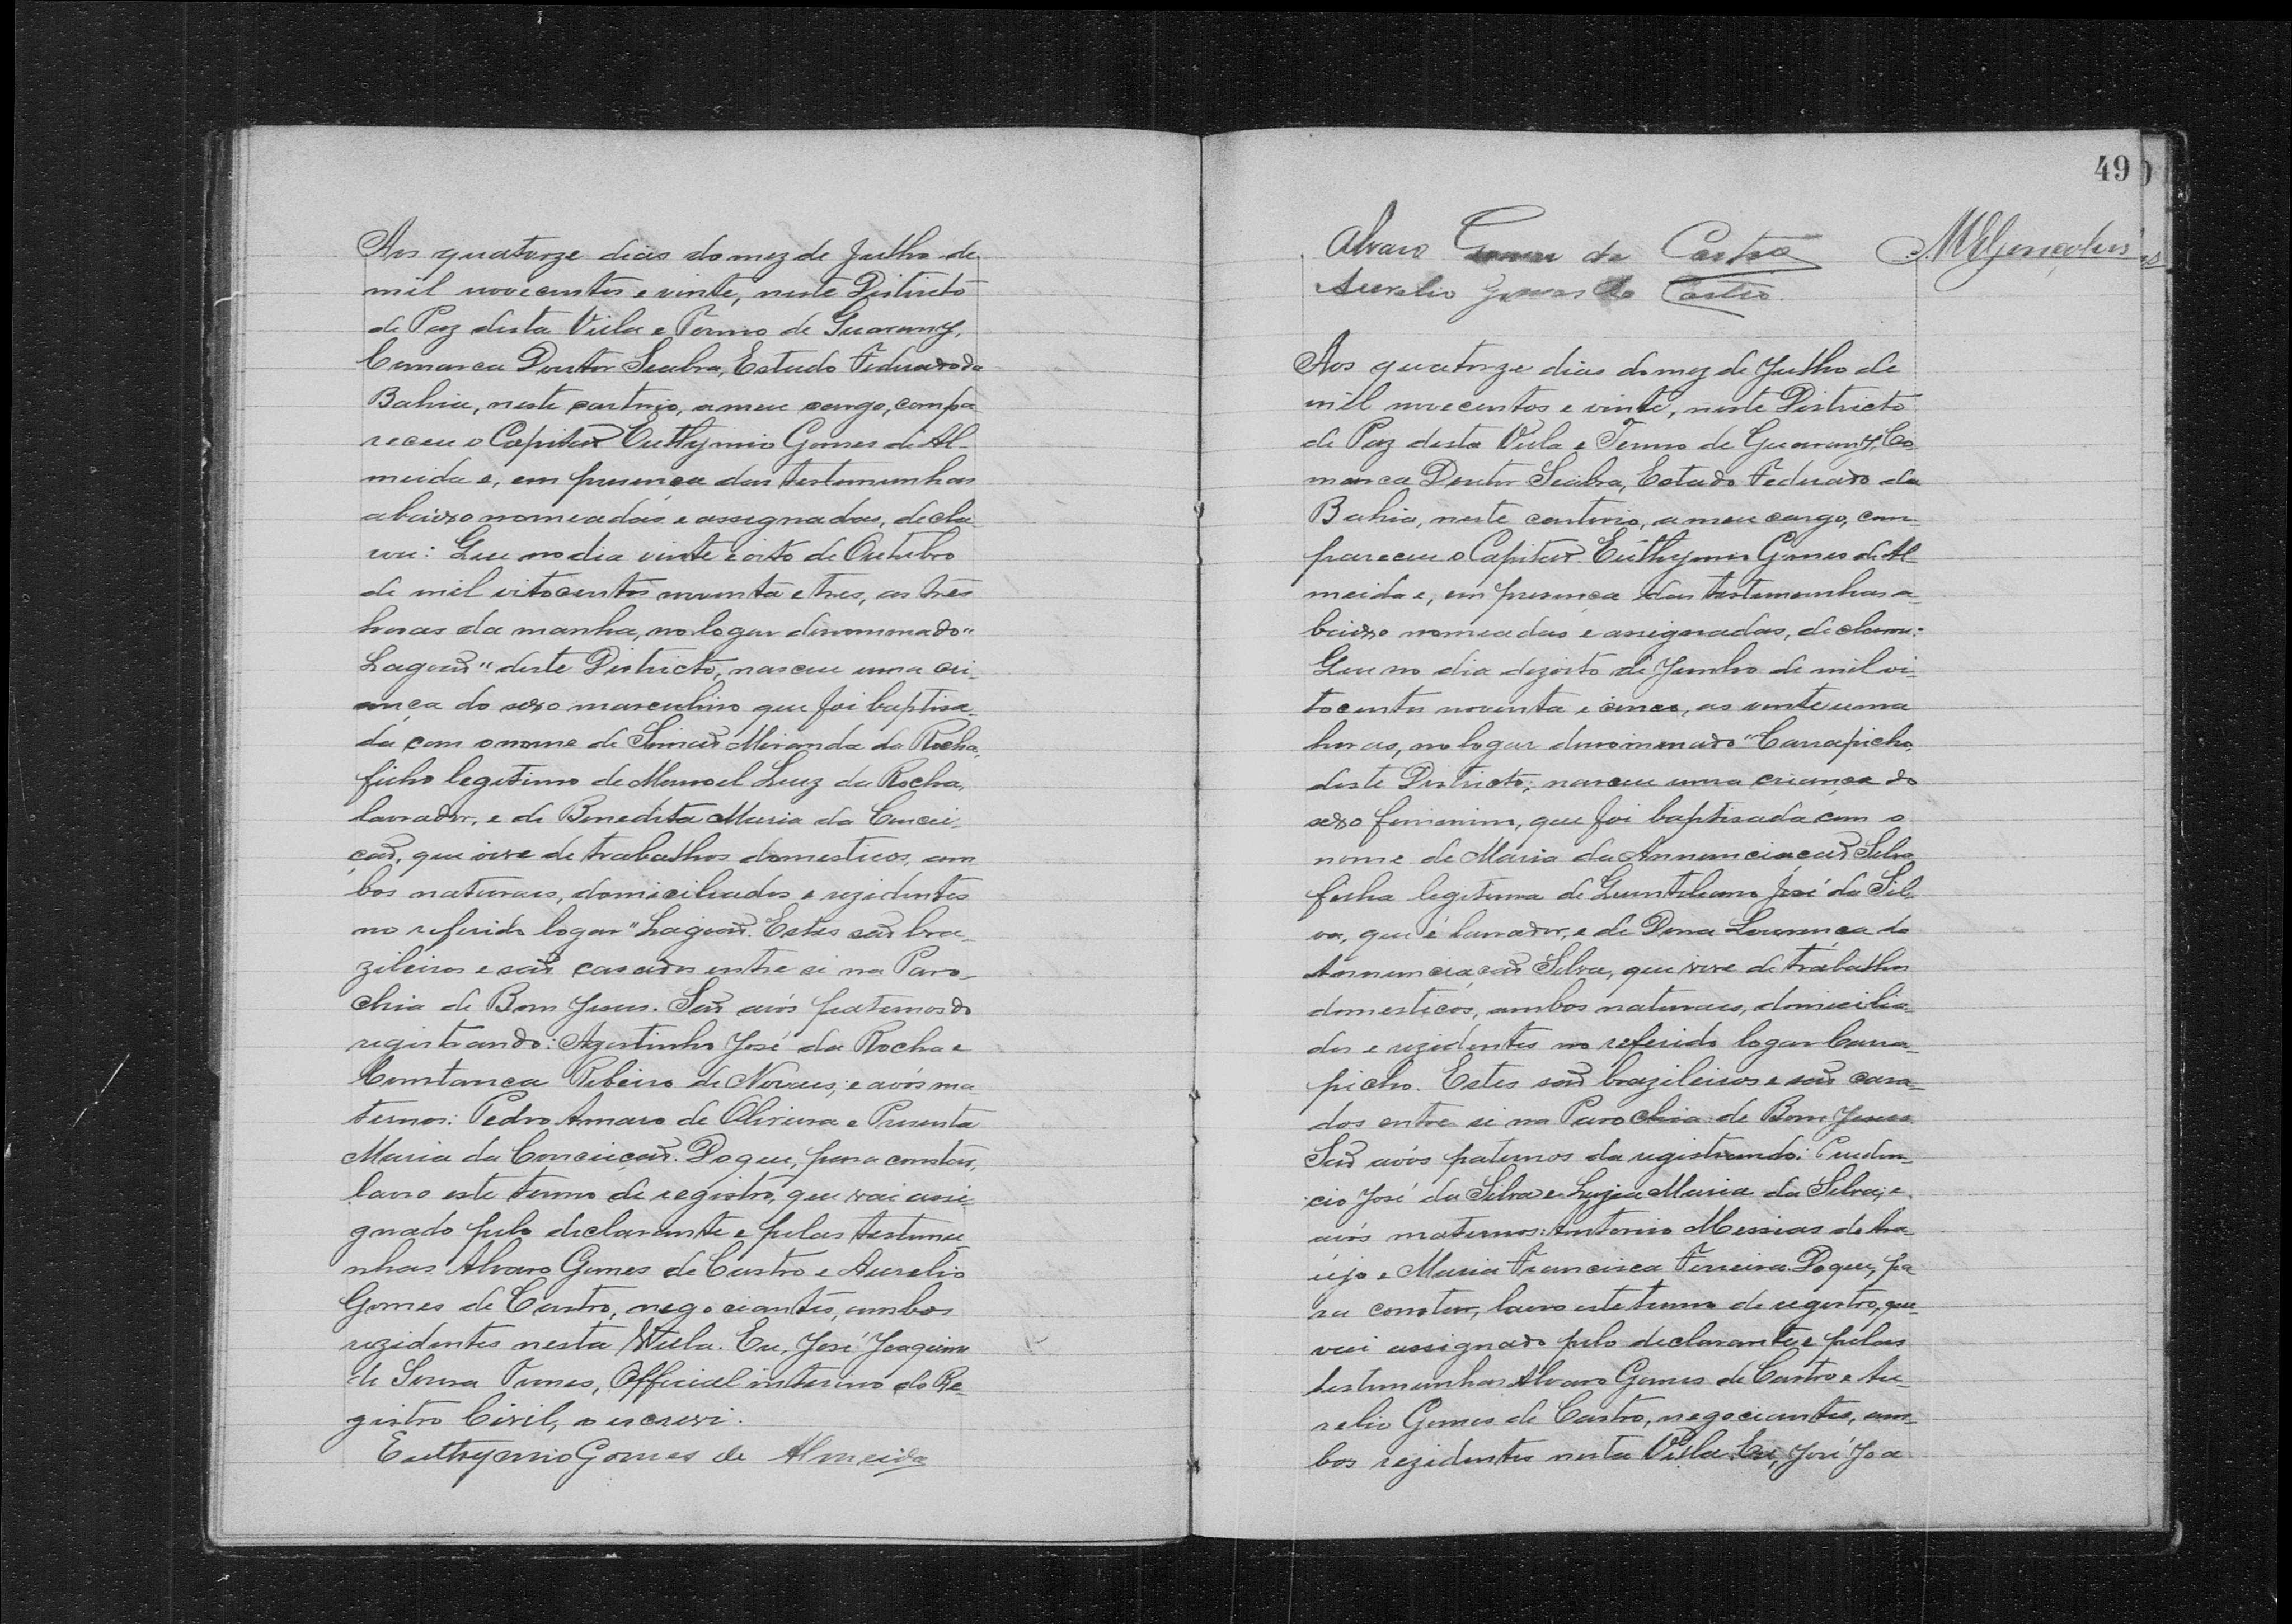 Aos quatorze dias do mez de Julho de
mil novecentos e vinte, neste Districto
de Paz desta Villa e Termo de Guarany,
Comarca Doutor Seabra, Estado Federado da
Bahia, neste cartorio, a meu cargo, compa
receu o Capitão Euthymio Gomes de Al-
meida e, em presença das testemunhas
abaixo nomeadas e assignadas, decla
rou: Que no dia vinte e oito de Outubro
de mil oitocentos noventa e tres, as tres
horas da manha, no logar denominado "
Lagoas" deste Districto, nasceu uma cri-
ança do sexo masculino que foi baptisa-
da com o nome de Simão Miranda da Rocha,
filho legitimo de Manoel Luiz da Rocha,
lavrador, e de Benedita Maria da Concei-
ção, que vive de trabalhos domesticos, am
bos naturaes, domiciliados e rezidentes
no referido logar "Lagoas. Estes são bra-
zileiros e são casados entre si na Paro-
chia de Bom Jesus. São avós paternos do
registrando: Agostinho José da Rocha e
Constança Ribeiro de Novaes; e avós ma-
ternos: Pedro Amaro de Oliveira e
Maria da Conceição. Do que, para constar,
lavro este termo de registro, que vai assi-
gnado pelo declarante e pelas testemu
nhas Alvaro Gomes de Castro e Aurelio
Gomes de Castro, negociantes, ambos
rezidentes nesta Villa. Eu, José Joaquim
de Sousa, Official interino do Re-
gistro Civil, o escrevi.
Euthymio Gomes de Almeida
49
Alvaro Gomes de Castro
Aurelio Gomes de Castro
Aos quatorze dias do mez de Julho de
mil novecentos e vinte, neste Districto
de Paz desta Villa e Termo de Guarany, Co
marca Doutor Seabra, Estado Federado da
Bahia, neste cartorio, a meu cargo, com-
pareceu o Capitão Euthymio Gomes de Al-
meida e, em presença das testemunhas a-
baixo nomeadas e assignadas, declarou:
Que no dia dezoito de Junho de mil oi-
tocentos noventa e cinco, as vinte e uma
horas, no logar denominado "Carrapicho,
deste Districto; nasceu uma criança do
sexo feminino, que foi baptisada com o
nome de Maria da Annunciação Silva,
filha legitima de Quintiliano José da Sil-
va, que é lavrador, e de Dona Lourença da
Annunciação Silva, que vive de trabalhos
domesticos, ambos naturaes, domicilia-
dos e rezidentes no referido logar Carra-
picho. Estes são brazileiros e são casa-
dos entre si na Parochia de Bom Jesus
São avós paternos da registrando: Pruden-
cio José da Silva e Luzia Maria da Silva; e
avós maternos: Antonio Messias de Ara-
újo e Maria Francisca Ferreira. Do que, pa
ra constar, lavro este termo de registro, que
vai assignado pelo declarante e pelas
testemunhas Alvaro Gomes de Castro e Au-
relio Gomes de Castro, negociantes, am-
bos rezidentes nesta Villa. Eu, José Joa